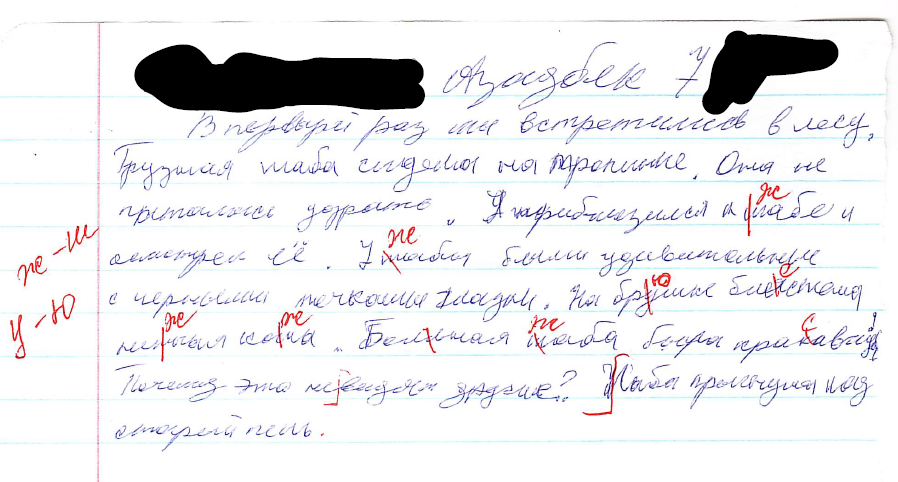 Азадбек 7
В первый раз ми встретимсь в лесу.
Грузная шаба сидела на тропинке. Она не
питалась удрать. Я приблизился к шабе и
ж
осмотрел её. У шабы были удивительные
ж
ж - ш
с черными точками глаза. На брушке блестела
ю с
у - ю
неш​ная коша. Большая шаба была красавица!
ж ж ж с
Почему это невидят другие? Шаба прыгнула под
старый пень.